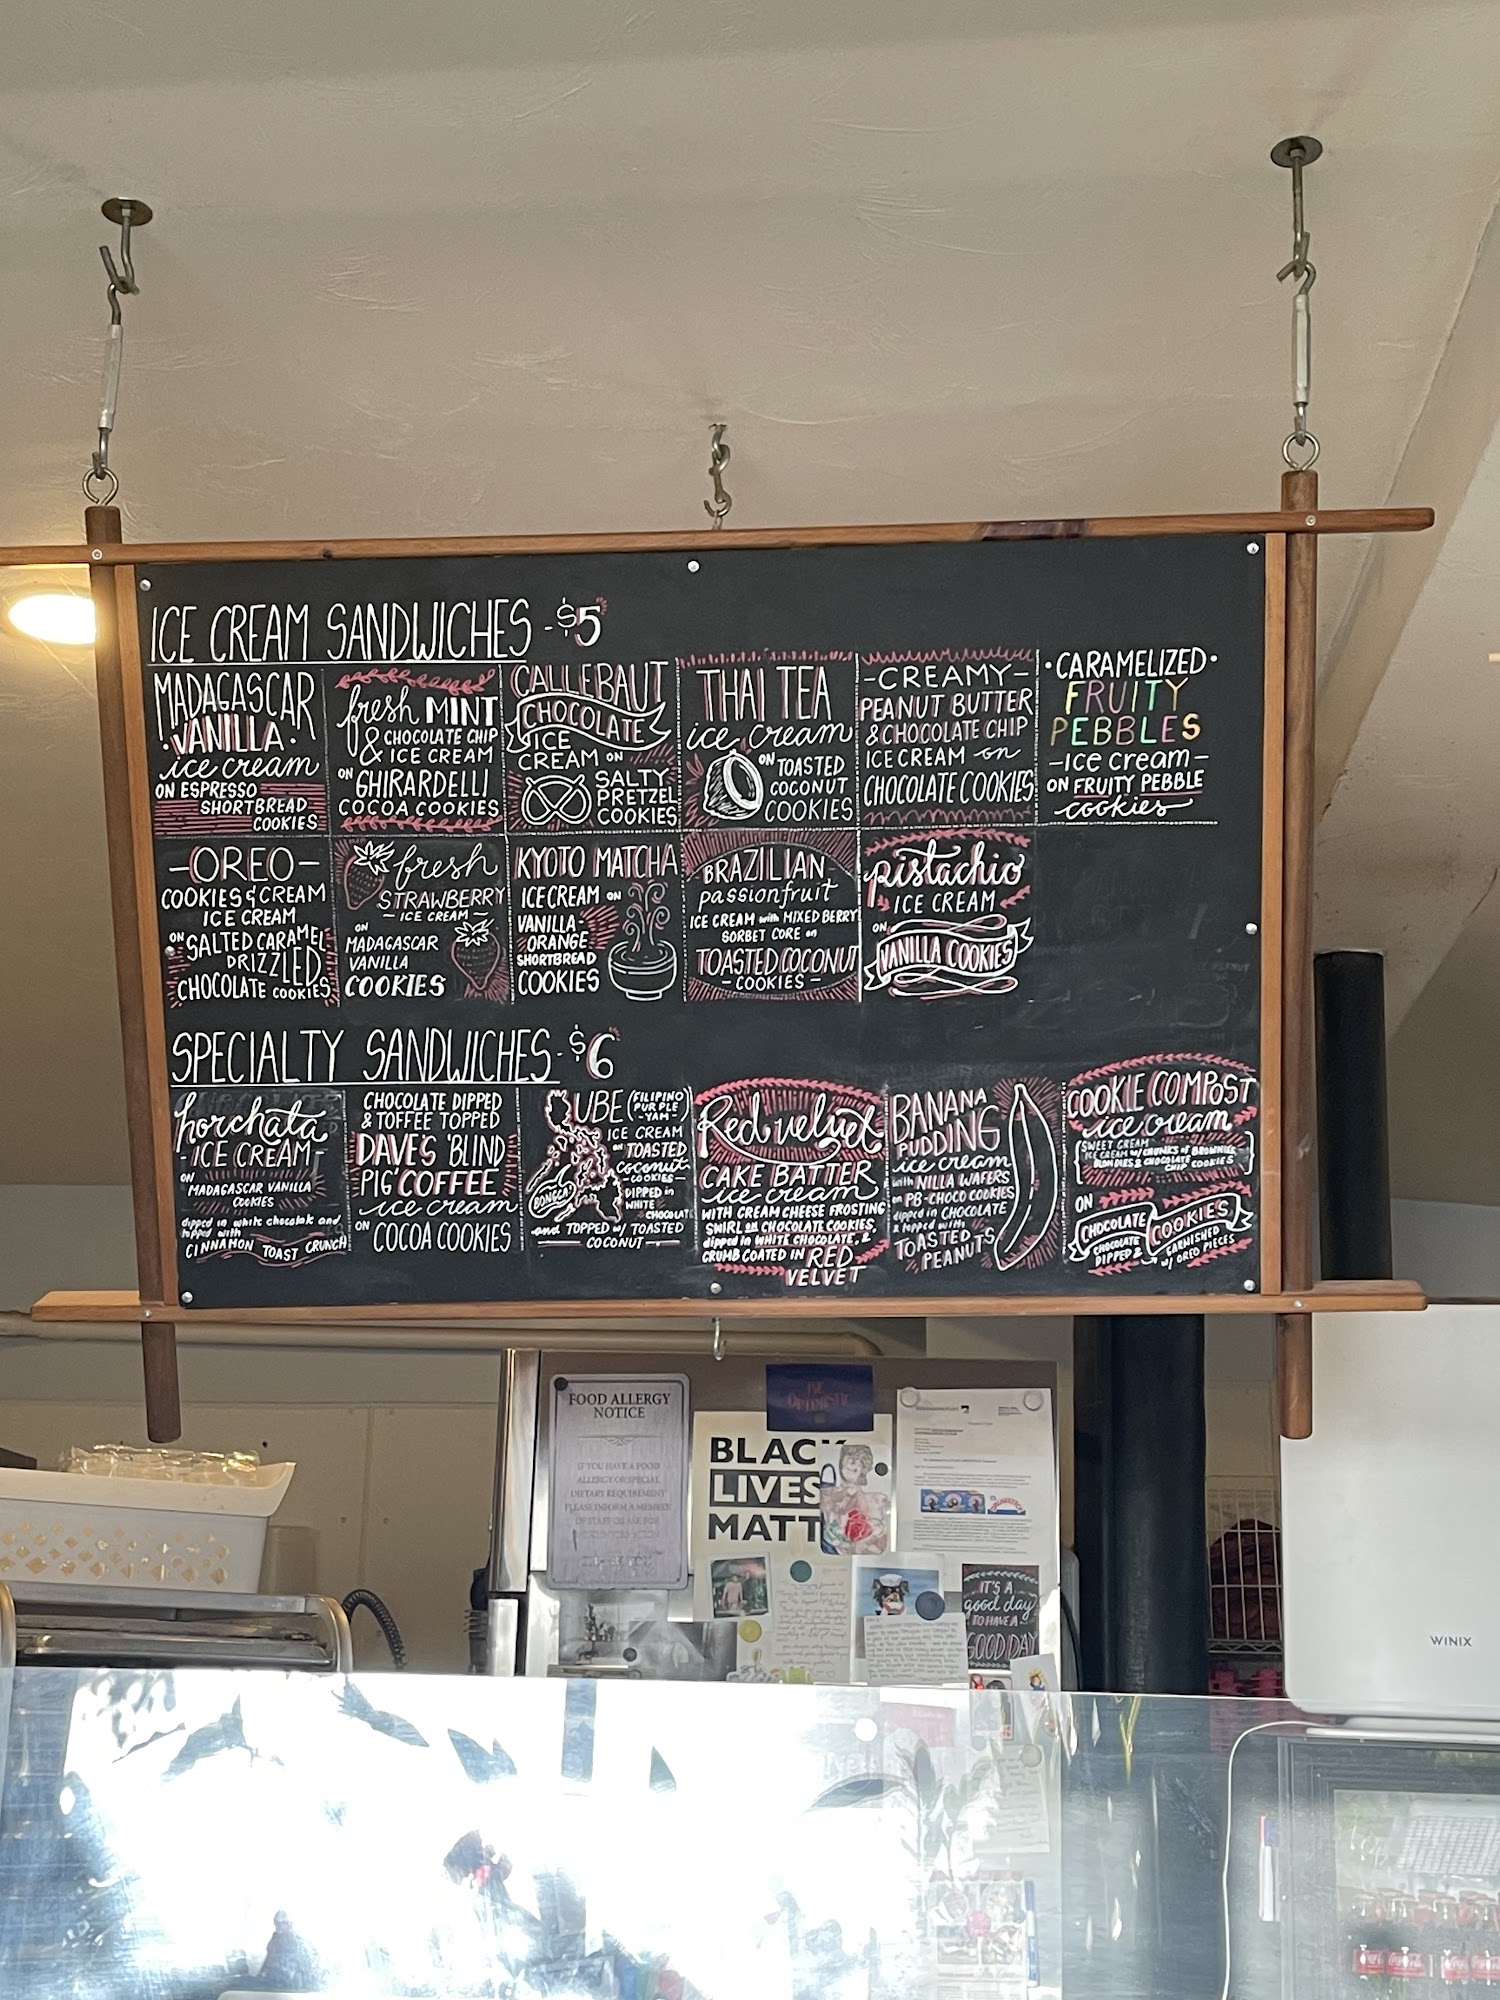 ICE CREAM SANDWICHES - $5
MADAGASCAR
·VANILLA·
ice cream
ON ESPRESSO
SHORTBREAD
COOKIES
fresh MINT
CHOCOLATE CHIP
& ICE CREAM
ON GHIRARDELLI
COCOA COOKIES
CALLEBAUT
CHOCOLATE
ICE
CREAM ON
SALTY
PRETZEL
COOKIES
THAI TEA
ice cream
ON TOASTED
COCONUT
COOKIES
-CREAMY-
PEANUT BUTTER
& CHOCOLATE CHIP
ICE CREAM on
CHOCOLATE COOKIES
·CARAMELIZED·
FRUITY
PEBBLES
-ice cream-
ON FRUITY PEBBLE
cookies
-OREO-
COOKIES & CREAM
ICE CREAM
ON SALTED CARAMEL
DRIZZLED
CHOCOLATE COOKIES
fresh
STRAWBERRY
- ICE CREAM -
ON
MADAGASCAR
VANILLA
COOKIES
KYOTO MATCHA
ICE CREAM ON
VANILLA-
ORANGE
SHORTBREAD
COOKIES
BRAZILIAN
passionfruit
ICE CREAM with MIXED BERRY
SORBET CORE on
TOASTED COCONUT
- COOKIES -
pistachio
ICE CREAM
ON
VANILLA COOKIES
SPECIALTY SANDWICHES - $6
horchata
- ICE CREAM -
ON
MADAGASCAR VANILLA
COOKIES
dipped in white chocolate and
topped with
CINNAMON TOAST CRUNCH
CHOCOLATE DIPPED
& TOFFEE TOPPED
DAVE'S 'BLIND
PIG' COFFEE
ice cream
ON COCOA COOKIES
UBE (FILIPINO
PURPLE
-YAM-)
ICE CREAM
ON TOASTED
coconut
-COOKIES-
DIPPED in
WHITE
CHOCOLATE
and TOPPED w/ TOASTED
COCONUT
Red velvet
CAKE BATTER
ice cream
WITH CREAM CHEESE FROSTING
SWIRL on CHOCOLATE COOKIES,
dipped in WHITE CHOCOLATE, &
CRUMB COATED IN RED
VELVET
BANANA
PUDDING
ice cream
with NILLA WAFERS
on PB-CHOCO COOKIES
dipped in CHOCOLATE
& topped with
TOASTED
PEANUTS
COOKIE COMPOST
ice cream
(SWEET CREAM
ICE CREAM w/ CHUNKS of BROWNIES
BLONDIES & CHOCOLATE
CHIP COOKIES)
ON
CHOCOLATE
COOKIES
CHOCOLATE
DIPPED &
GARNISHED
w/ OREO PIECES
FOOD ALLERGY
NOTICE
IF YOU HAVE A FOOD
ALLERGY OR SPECIAL
DIETARY REQUIREMENT
PLEASE INFORM A MEMBER
OF STAFF OR ASK FOR
BE
OPTIMISTIC
BLACK
LIVES
MATT
IT'S A
good day
TO HAVE A
GOOD DAY
WINIX